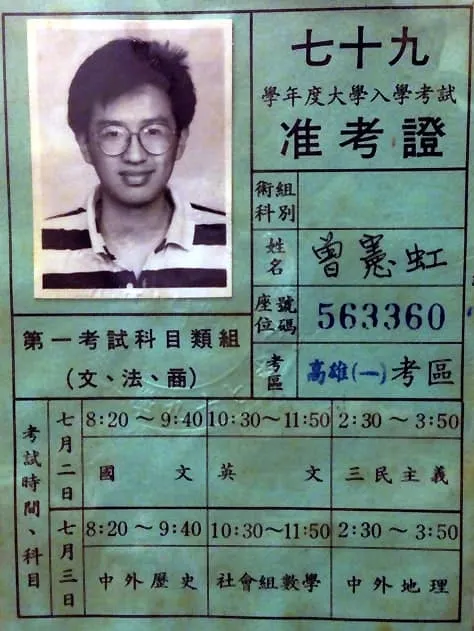 七十九
學年度大學入學考試
准考證
術組
科別
姓名
曾憲虹
座號
位碼
563360
考區
高雄(一)考區
第一考試科目類組
(文、法、商)
考試時間、科目
七月二日
8:20～9:40
10:30～11:50
2:30～3:50
國文
英文
三民主義
七月三日
8:20～9:40
10:30～11:50
2:30～3:50
中外歷史
社會組數學
中外地理